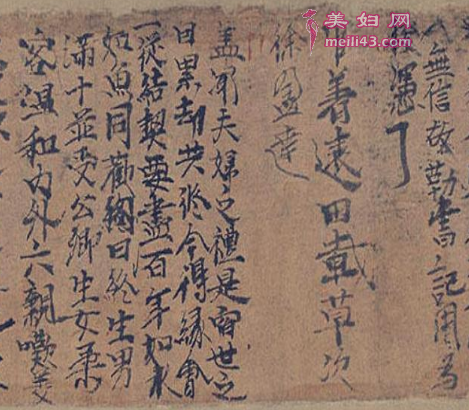 美妇网
meili43.com
無信故勒書記用為
憑了
善遠田章載草次
盈達
盖聞夫婦之禮是宿世之
因累却共修今得縁會
一從結契要盡百年如水
如魚同歡終日生男
滿十並受公卿生女柔
容温和内外六親嘆美